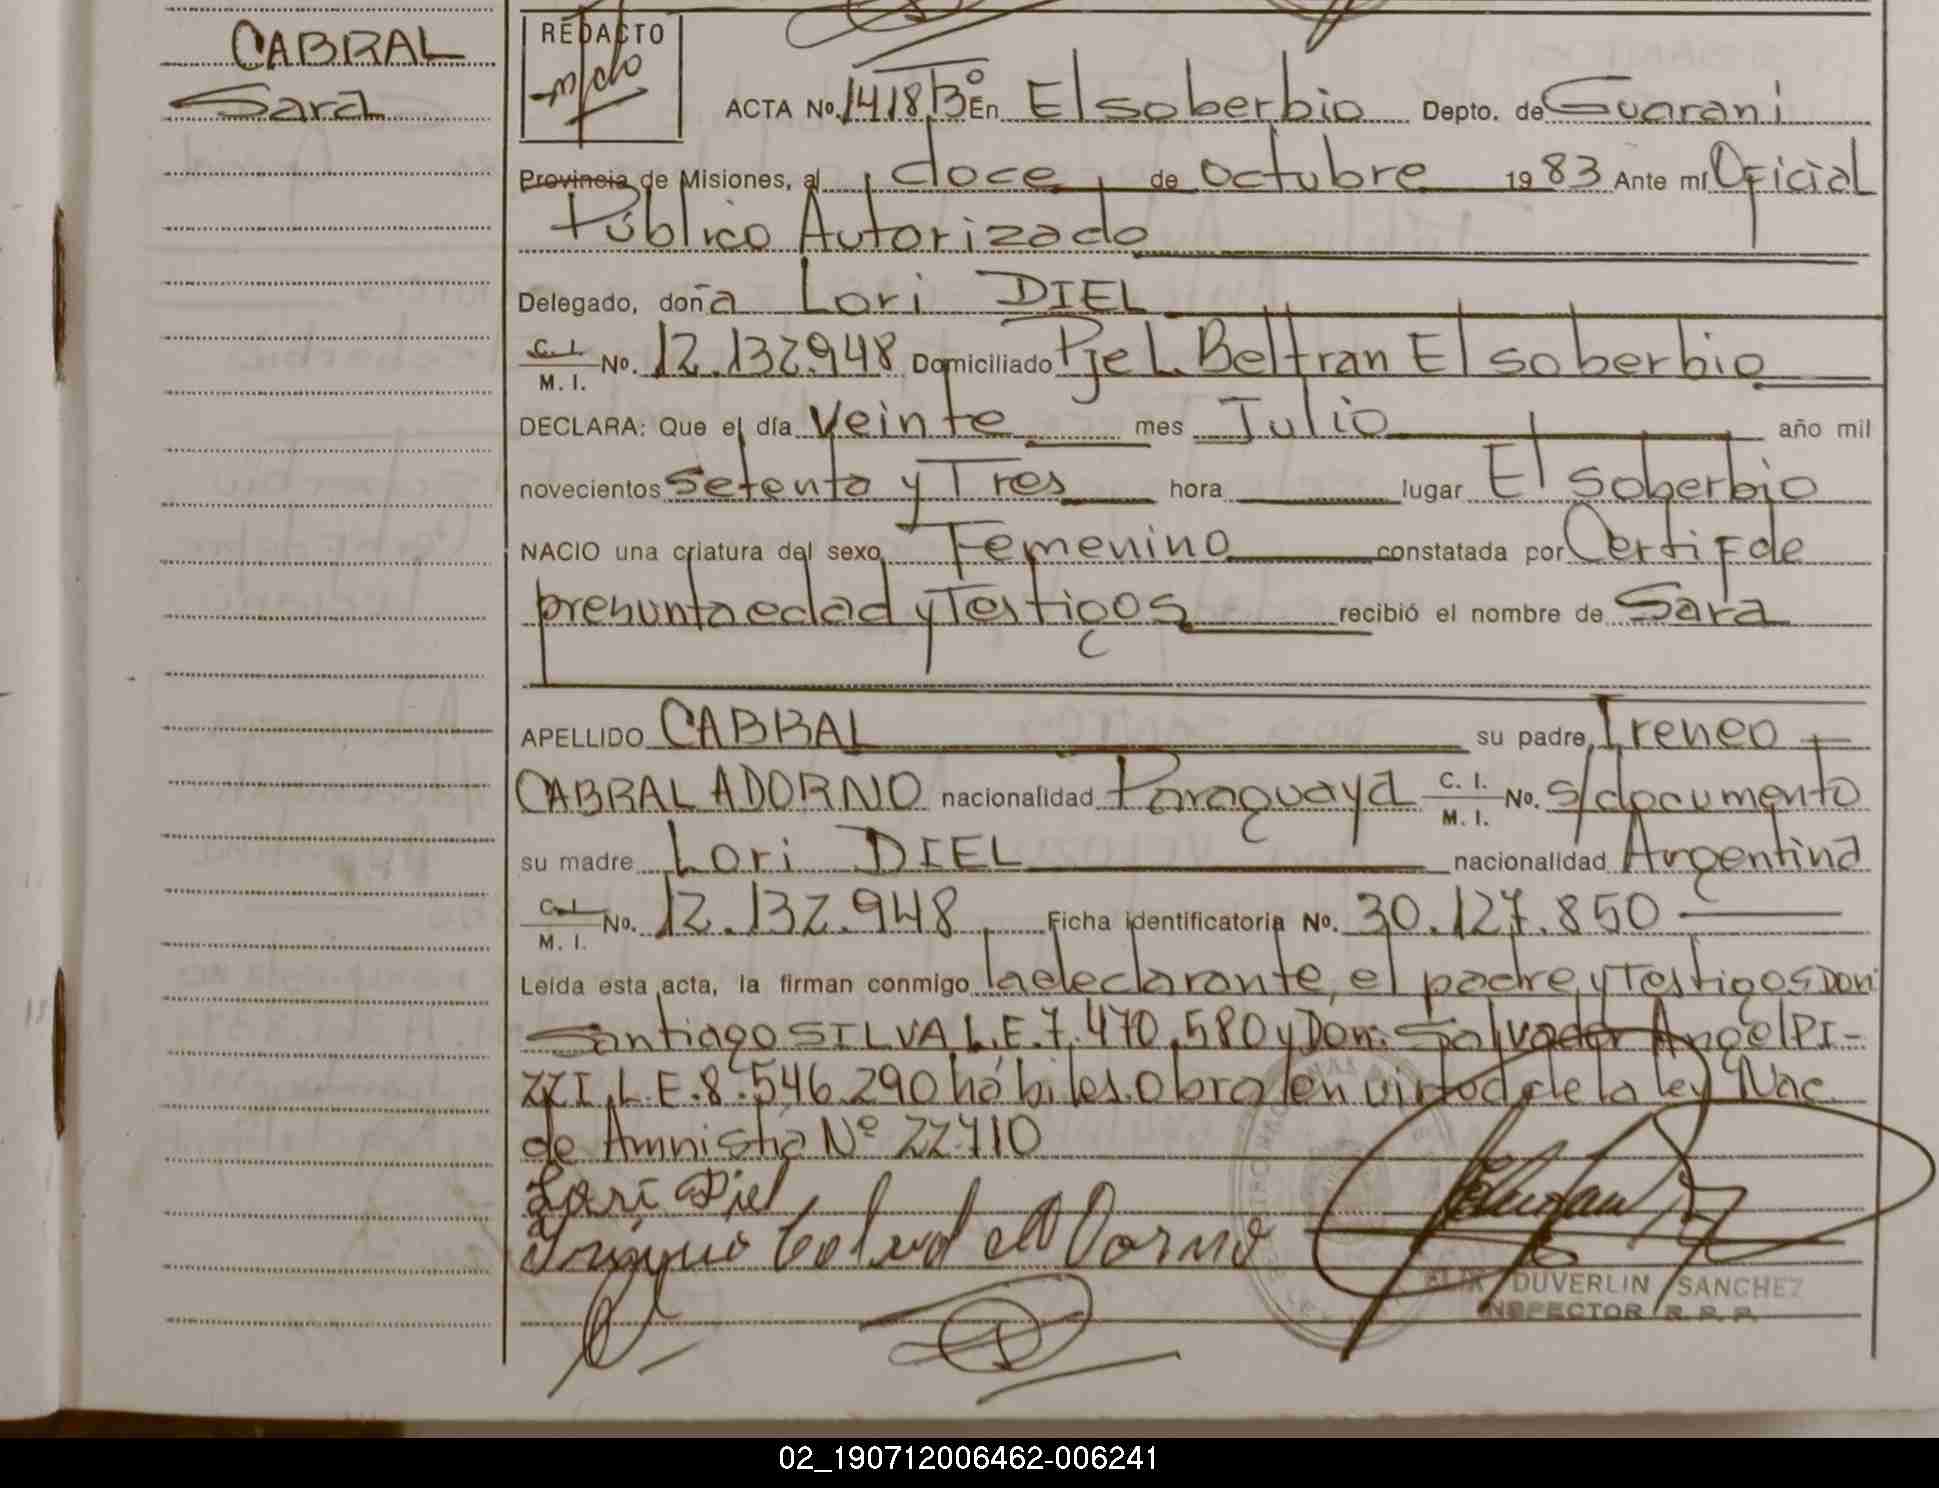 CABRAL
Sara
REDACTO
ACTA No. 1418 Bº En El soberbio Depto. de Guarani
Provincia de Misiones, al doce de octubre 1983 Ante mi Oficial
Público Autorizado
Delegado, doña Lori DIEL
C. I. / M. I. No. 12.132.948 Domiciliado Pje L. Beltran El soberbio
DECLARA: Que el día veinte mes Julio año mil
novecientos setenta y Tres hora lugar El soberbio
NACIO una criatura del sexo Femenino constatada por Certif de
presunta edad y Testigos recibió el nombre de Sara
APELLIDO CABRAL su padre, Ireneo
CABRAL ADORNO nacionalidad Paraguaya C. I. / M. I. No. s/documento
su madre Lori DIEL nacionalidad Argentina
C. I. / M. I. No. 12.132.948 Ficha identificatoria No. 30.127.850
Leída esta acta, la firman conmigo la declarante, el padre, y Testigos Don:
Santiago SILVA L.E. 7.470.580 y Don: Salvador Angel PI-
ZZI L.E. 8.546.290 hábiles. Obra en virtud de la ley Nac.
de Amnistia Nº 22.410
Lori Diel
DUVERLIN SANCHEZ
INSPECTOR R. P. P.
02_190712006462-006241